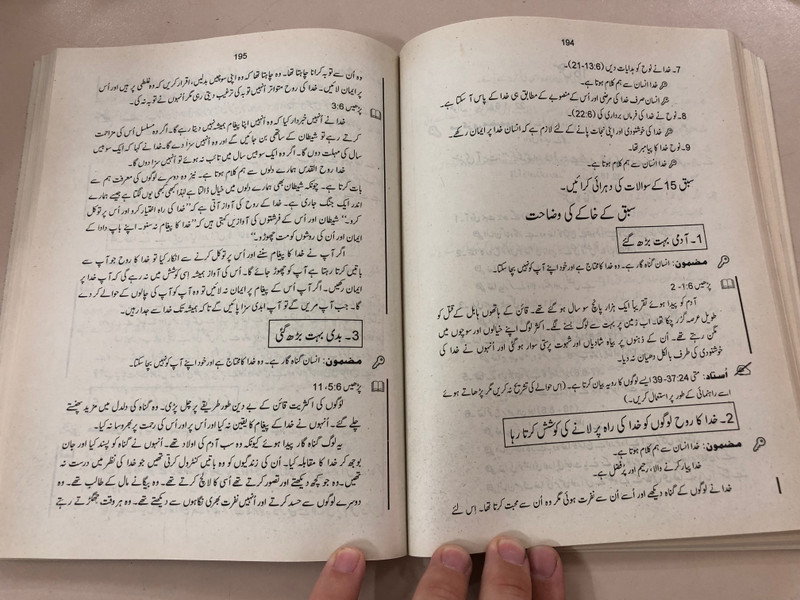 194
7۔ خدا نے نوح کو ہدایات دیں (13:6-21)۔
خدا انسان سے ہم کلام ہوتا ہے۔
انسان صرف خدا کی مرضی اور اُس کے منصوبے کے مطابق ہی خدا کے پاس آ سکتا ہے۔
8۔ نوح نے خدا کی فرماں برداری کی (22:6)۔
خدا کی خوشنودی اور اپنی نجات پانے کے لئے لازم ہے کہ انسان خدا پر ایمان رکھے۔
9۔ نوح خدا کا پیامبر تھا۔
خدا انسان سے ہم کلام ہوتا ہے۔
سبق 15 کے سوالات کی دہرائی کرائیں۔
سبق کے خاکے کی وضاحت
1۔ آدمی بہت بڑھ گئے
مضمون: انسان گناہ گار ہے۔ وہ خدا کا محتاج ہے اور خود اپنے آپ کو نہیں بچا سکتا۔
پڑھیں 1:6-2
آدم کو پیدا ہوئے تقریباً ایک ہزار پانچ سو سال ہو گئے تھے۔ قائن کے ہاتھوں ہابل کے قتل کو
طویل عرصہ گزر چکا تھا۔ اب زمین پر بہت سے لوگ بسنے لگے۔ اکثر لوگ اپنے خیالوں اور سوچوں میں
مگن رہتے تھے۔ اُن کے ذہنوں پر بیاہ شادیاں اور شہوت پرستی سوار ہو گئی اور اُنہوں نے خدا کی
خوشنودی کی طرف بالکل دھیان نہ دیا۔
اُستاد: متی 37:24-39 ایسے لوگوں کا رویہ بیان کرتا ہے۔ (اس حوالے کی تشریح نہ کریں مگر پڑھاتے ہوئے
اسے راہنمائی کے طور پر استعمال کریں۔)
2۔ خدا کا روح لوگوں کو خدا کی راہ پر لانے کی کوشش کرتا رہا
مضمون: خدا انسان سے ہم کلام ہوتا ہے۔
خدا پیار کرنے والا، رحیم اور پُرفضل ہے۔
خدا نے لوگوں کے گناہ دیکھے اور اُسے اُن سے نفرت ہوئی مگر وہ اُن سے محبت کرتا تھا۔ اِس لئے
195
وہ اُن سے توبہ کرانا چاہتا تھا۔ وہ چاہتا تھا کہ وہ اپنی سوچیں بدلیں، اقرار کریں کہ وہ غلطی پر ہیں اور اُس
پر ایمان لائیں۔ خدا کی روح متواتر اُنہیں توبہ کی ترغیب دیتی رہی مگر اُنہوں نے توبہ نہ کی۔
پڑھیں 3:6
خدا نے اُنہیں خبردار کیا کہ وہ اُنہیں اپنا پیغام ہمیشہ نہیں دیتا رہے گا۔ اگر وہ مسلسل اُس کی مزاحمت
کرتے رہے تو شیطان کے ساتھی بن جائیں گے اور وہ اُنہیں سزا دے گا۔ خدا نے کہا کہ ایک سو بیس
سال کی مہلت دوں گا۔ اگر وہ ایک سو بیس سال میں تائب نہ ہوئے تو اُنہیں سزا دوں گا۔
خدا روح القدس ہمارے دلوں سے ہم کلام ہوتا ہے۔ نیز وہ دوسرے لوگوں کی معرفت ہم سے
بات کرتا ہے۔ چونکہ شیطان بھی ہمارے دلوں میں خیال ڈالتا ہے لہٰذا کبھی کبھی یوں لگتا ہے جیسے ہمارے
اندر ایک جنگ جاری ہے۔ خدا کے روح کی آواز آتی ہے کہ "خدا کی راہ اختیار کرو اور اُس پر توکل
کرو۔" شیطان اور اُس کے فرشتوں کی آوازیں کہتی ہیں کہ "خدا کا پیغام نہ سنو۔ اپنے باپ دادا کے
ایمان اور اُن کی روشوں کو مت چھوڑو۔"
اگر آپ نے خدا کا پیغام سننے اور اُس پر توکل کرنے سے انکار کیا تو خدا کا روح جو آپ سے
باتیں کرتا رہتا ہے آپ کو چھوڑ جائے گا۔ اُس کی آواز ہمیشہ اِسی کوشش میں نہ رہے گی کہ آپ خدا پر
ایمان رکھیں۔ اگر آپ اُس کے پیغام پر ایمان نہ لائیں تو وہ آپ کو آپ کی چالوں کے حوالے کر دے
گا۔ جب آپ مریں گے تو آپ ابدی سزا پائیں گے تاکہ ہمیشہ تک خدا سے جدا رہیں۔
3۔ بدی بہت بڑھ گئی
مضمون: انسان گناہ گار ہے۔ وہ خدا کا محتاج ہے اور خود اپنے آپ کو نہیں بچا سکتا۔
پڑھیں 5:6، 11
لوگوں کی اکثریت قائن کے بے دین طور طریقے پر چل پڑی۔ وہ گناہ کی دلدل میں مزید پھنستے
چلے گئے۔ اُنہوں نے خدا کے پیغام کا یقین نہ کیا اور اُس پر اور اُس کی رحمت پر بھروسا نہ کیا۔
یہ لوگ گناہ گار پیدا ہوئے کیونکہ وہ سب آدم کی اولاد تھے۔ اُنہوں نے گناہ کو پسند کیا اور جان
بوجھ کر خدا کا مقابلہ کیا۔ اُن کی زندگیوں کو وہ باتیں کنٹرول کرتی تھیں جو خدا کی نظر میں درست نہ
تھیں۔ وہ جو کچھ دیکھتے اور تصور کرتے تھے اُسی کا لالچ کرتے تھے۔ وہ بیگانے مال کے طالب تھے۔ وہ
دوسرے لوگوں سے حسد کرتے اور اُنہیں نفرت بھری نگاہوں سے دیکھتے تھے۔ وہ ہر وقت جھگڑتے رہتے